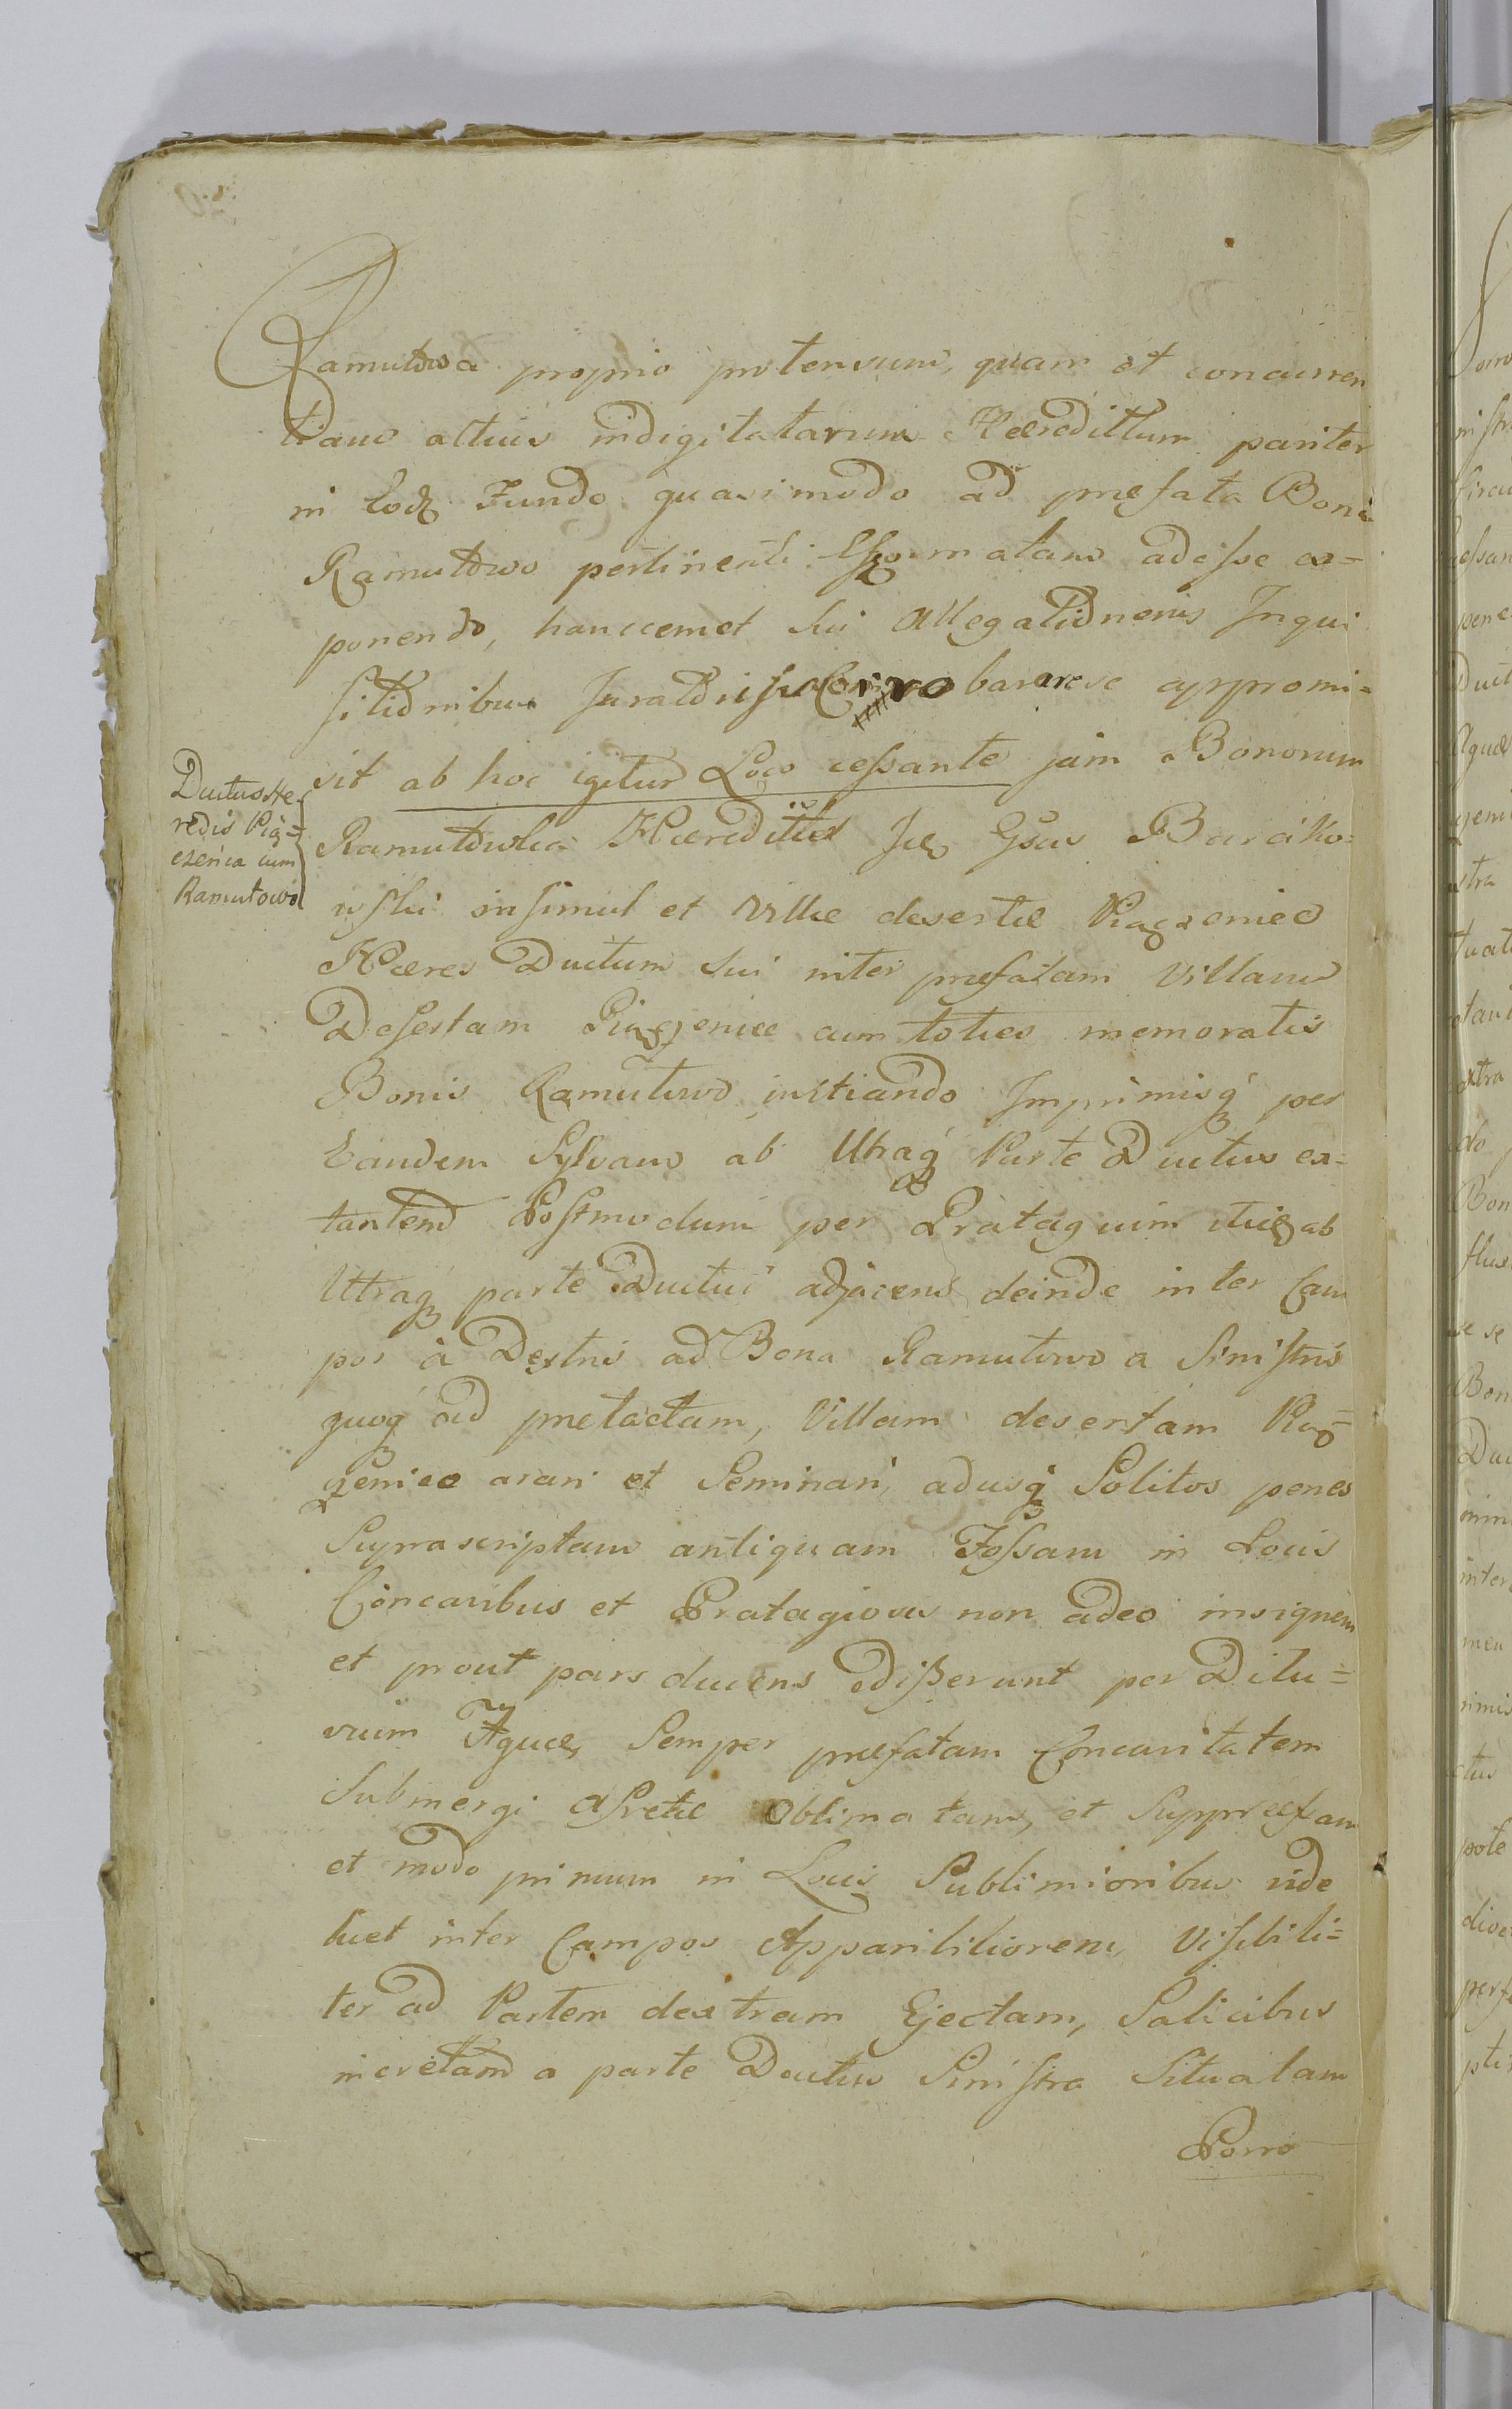 Ramutowo proprio protensum, quam et concurren
tiam altius indigitatarum Hæreditatum pariter
in Eodz Fundo quasimodo ad præfata Bona
Ramutowo pertinenti adesse ex=
ponendo, hanccemet sui Allegationem Inqui
sitionibus Juratoriis Corrobarare se appromi=
sit ab hoc igitur Loco cessante jam Bonorum
Ramutowka Hærede Barciko=
wski insimul et Villæ desertæ Piągzenice
Hæres Ductum sui inter præfatam Villam
Desertam Piągzenice cum toties memoratis
Bonis Ramutowo instiando Imprimisq per
Eandem Sylvam ab Utraq Parte Ductus ex=
tantem Postmodum per Prata ab
Utraq parte Ductus adjacens deinde inter Cam
pos à Dextris ad Bona Ramutowo a Sinistris
quoq ad prætactam, Villam desertam Pią=
gzenice arari et Seminari, adusq Solitos penes
Suprascriptam antiquam Fossam in Locis
Concavibus et non adeo insignem
et prout pars ducens edisserunt per Dilu=
vium Aquæ, Semper præfatam Concavitatem
Submergi Asvetæ Oblimatam, et Suppressam
et modo primum in Locis Sublimioribus vide
licet inter Campos Apparibiliorem, Visibili=
ter ad Partem dextram Ejectam, Salicibus
incretam a parte Ductus Sinistra Situatam
Porro
Ductus Hæ=
redis Pią=
czenica cum
Ramutowo